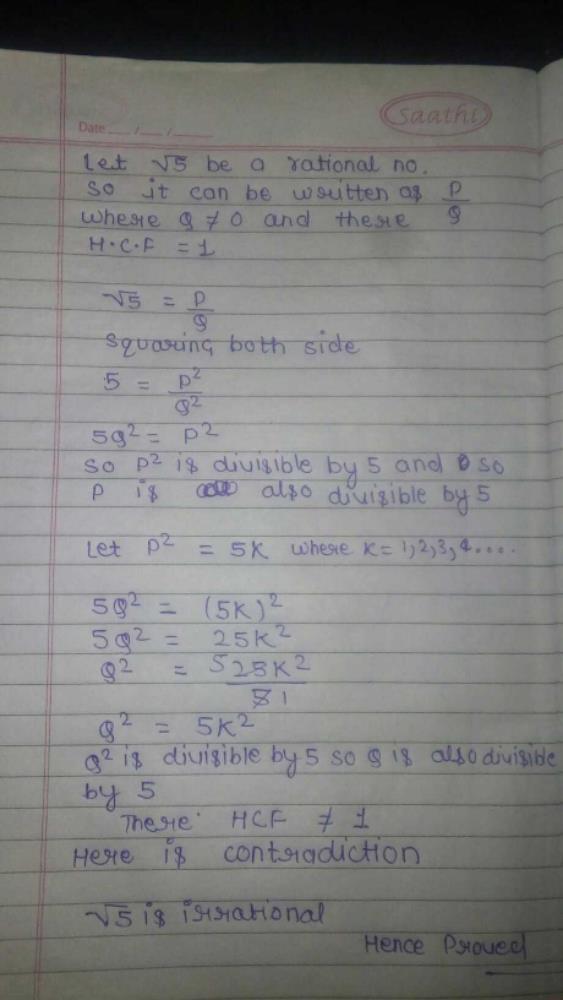 Saathi
Date __ / __ / ____
Let √5 be a rational no.
So it can be written as P/Q
where Q ≠ 0 and there
H.C.F = 1
√5 = P/Q
Squaring both side
5 = P²/Q²
5Q² = P²
So P² is divisible by 5 and so
P is also divisible by 5
Let P² = 5K where K = 1,2,3,4....
5Q² = (5K)²
5Q² = 25K²
Q² = 5 25K²/5 1
Q² = 5K²
Q² is divisible by 5 so Q is also divisible
by 5
There HCF ≠ 1
Here is contradiction
√5 is irrational
Hence Proved